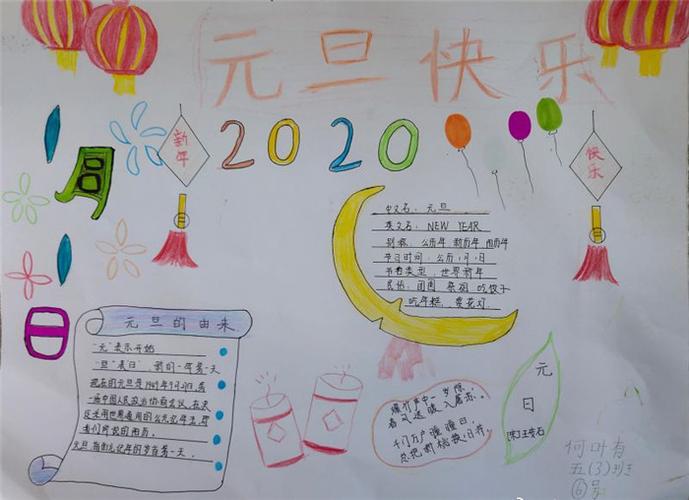 元旦快乐
新年
2020
快乐
1
月
1
日
中文名：元旦
英文名：NEW YEAR
别称：公历年 新历年 阳历年
节日时间：公历1月1日
节日类型：世界新年
民俗：团圆 祭祖 吃饺子
吃年糕，赏花灯
元旦的由来
"元"表示开始
"旦"表"日"，新的一年第一天
现在的元旦是1949年9月27日，第
一届中国人民政治协商会议，在决
元旦，指公元记年的岁首第一天。
爆竹声中一岁除，
春风送暖入屠苏。
千门万户曈曈日，
总把新桃换旧符。
元
日
(宋)王安石
何叶有
五(3)班
⑥号